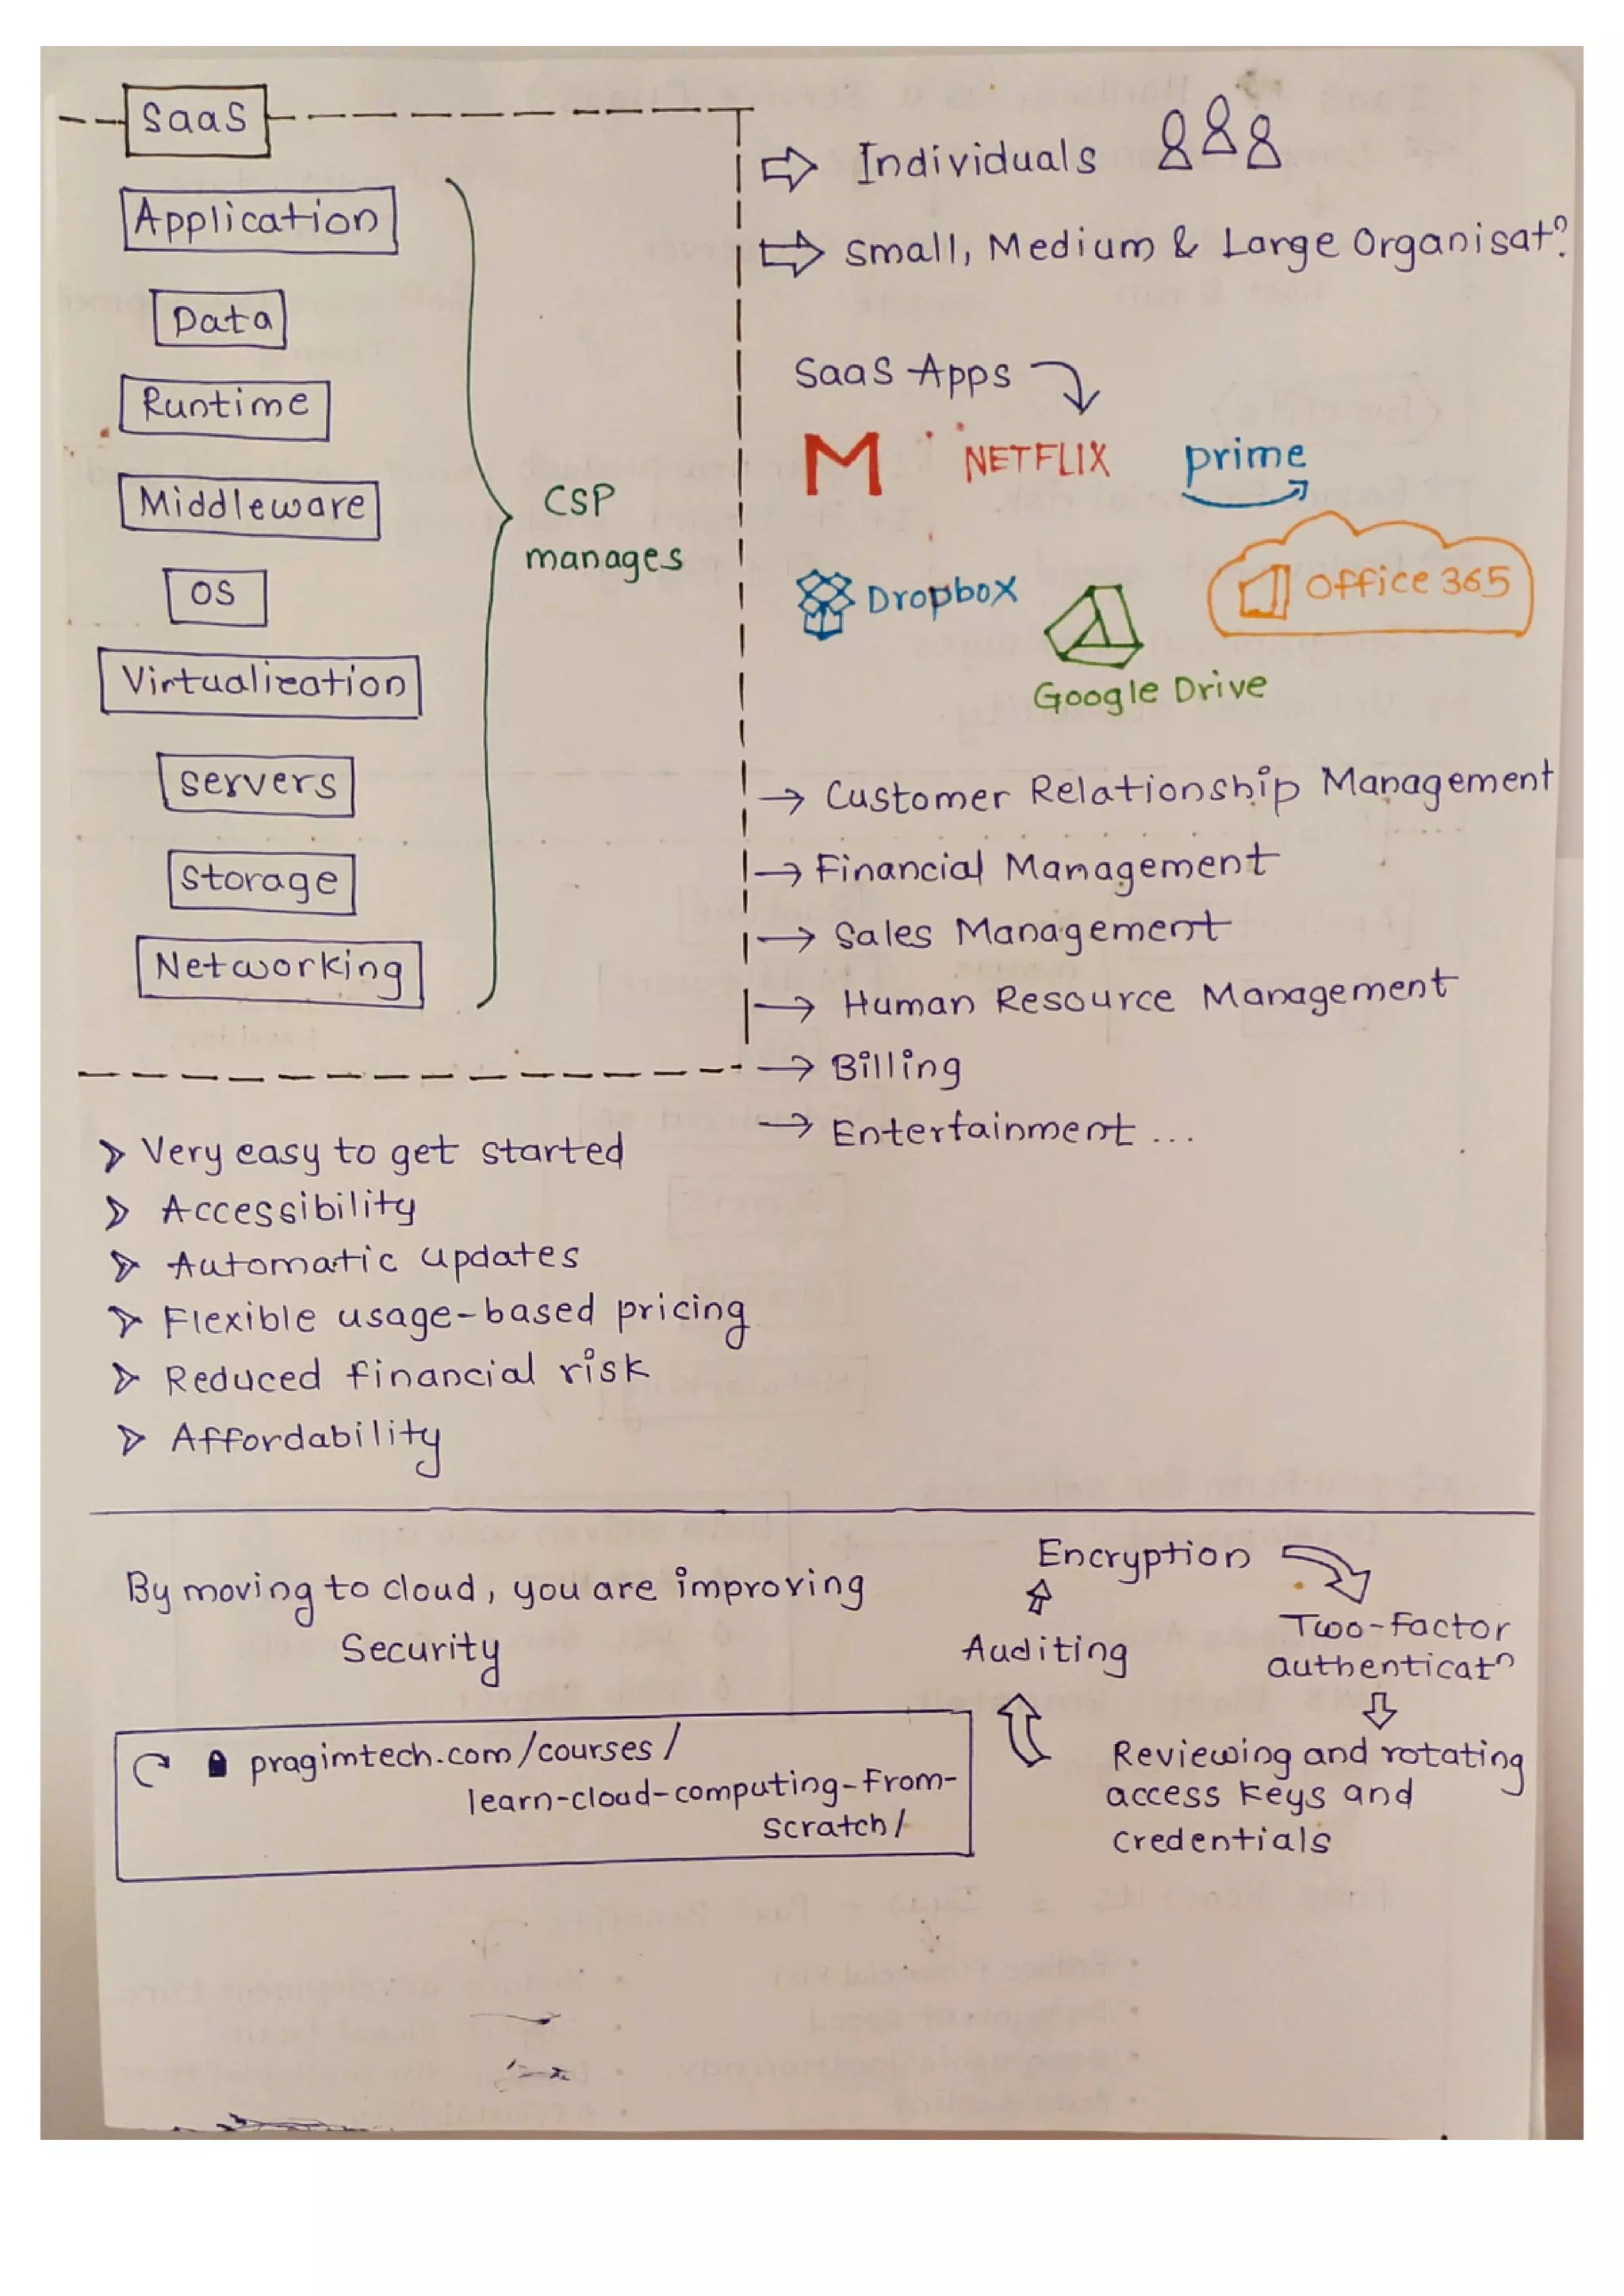 SaaS
Application
Data
Runtime
Middleware
OS
Virtualization
Servers
Storage
Networking
CSP
manages
Individuals
Small, Medium & Large Organisatⁿ
SaaS Apps
M
NETFLIX
prime
Dropbox
Office 365
Google Drive
Customer Relationship Management
Financial Management
Sales Management
Human Resource Management
Billing
Entertainment ...
Very easy to get started
Accessibility
Automatic updates
Flexible usage-based pricing
Reduced financial risk
Affordability
By moving to cloud, you are improving
Security
Encryption
Two-factor
authenticatⁿ
Reviewing and rotating
access keys and
credentials
Auditing
pragimtech.com/courses/
learn-cloud-computing-from-
scratch/